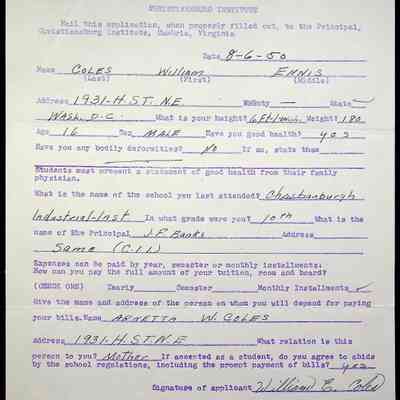 CHRISTIANSBURG INSTITUTE
Mail this application, when properly filled out, to the Principal,
Christiansburg Institute, Cambria, Virginia
Date 8-6-50
Name COLES William ENNIS
(Last) (First) (Middle)
Address 1931-H.ST. N.E. County — State
WASH. D.C. What is your height? 6 Ft. Weight? 180
Age 16 Sex MALE Have you good health? yes
Have you any bodily deformities? No If so, state them
Students must present a statement of good health from their family
physician.
What is the name of the school you last attended? Christianburgh
Industrial-Inst In what grade were you? 10th What is the
name of the Principal J.F. Banks Address
Same (C.I.I.)
Expenses can be paid by year, semester or monthly installments:
How can you pay the full amount of your tuition, room and board?
(CHECK ONE) Yearly Semester Monthly Installments ✓
Give the name and address of the person on whom you will depend for paying
your bills. Name ARNETTA W. COLES
Address 1931-H.ST.N.E What relation is this
person to you? Mother If accepted as a student, do you agree to abide
by the school regulations, including the prompt payment of bills? yes
Signature of applicant William E. Coles